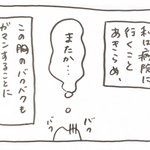 私は病院に
行くこと
あきらめ、
またか…
バク
バク
この胸のバクバクも
ガマンすることに